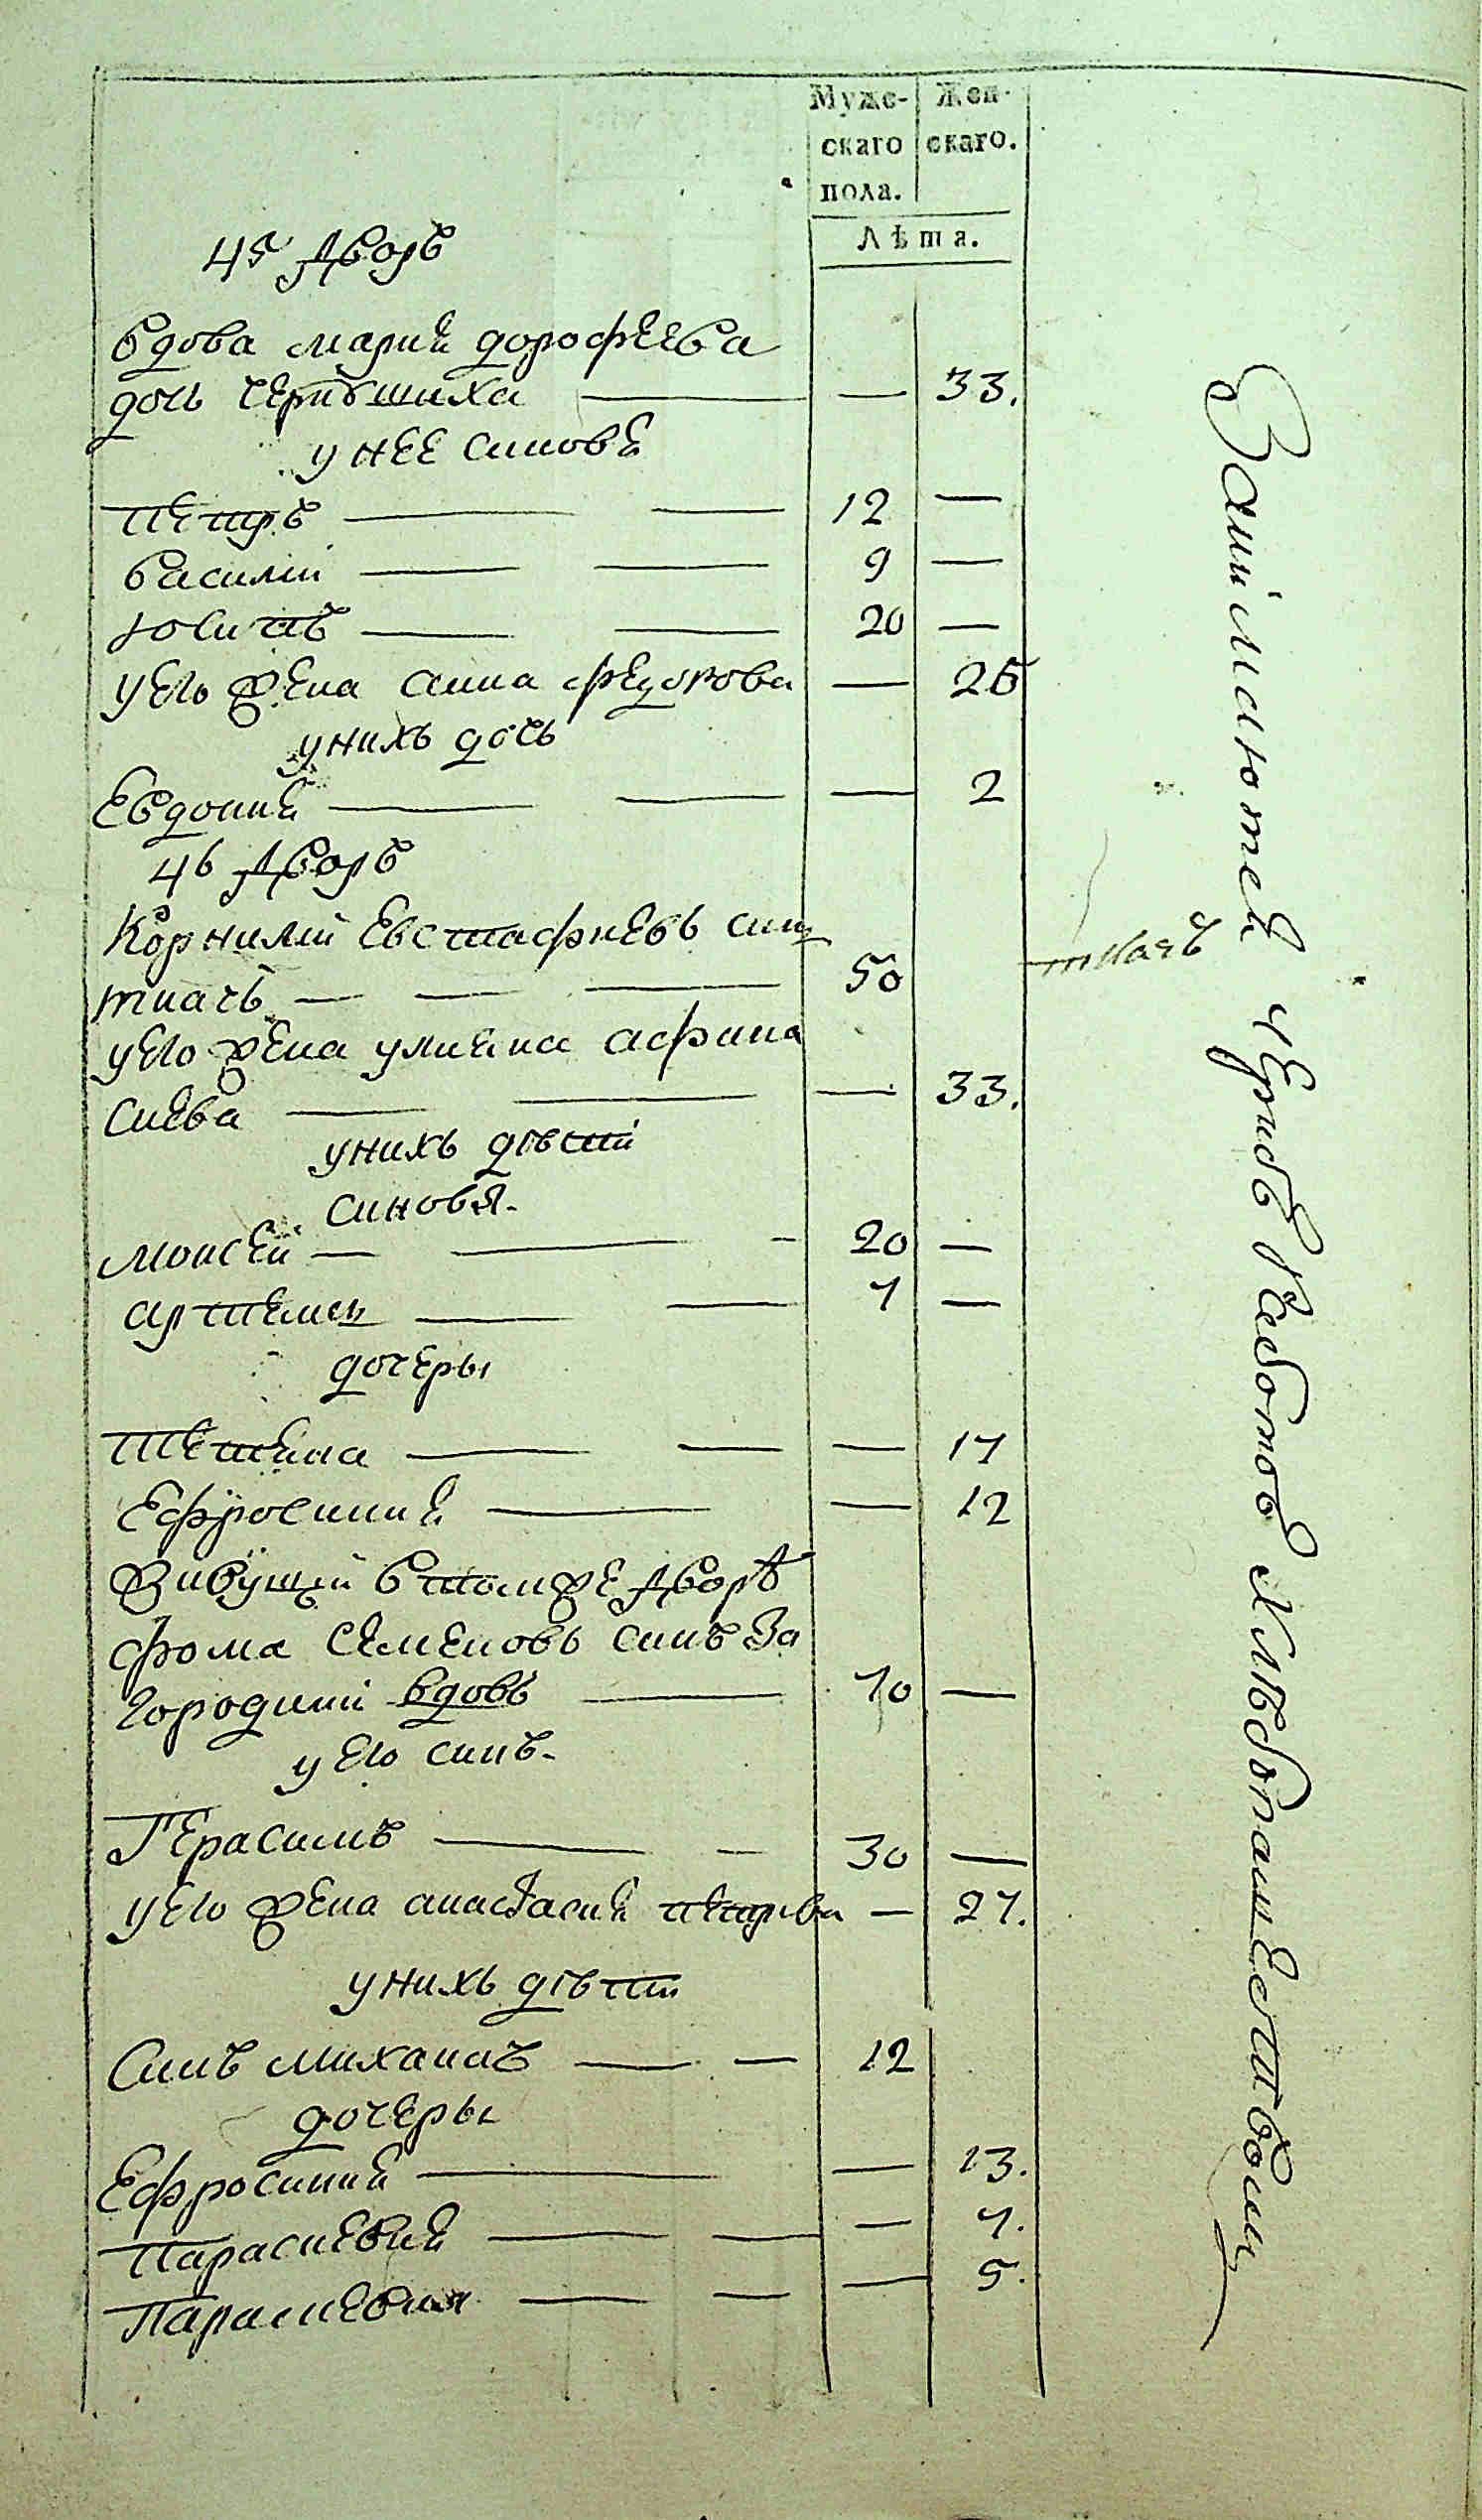 Муже- Жен-
скаго скаго.
пола.
Лѣта.
45 Дворъ
вдова мария дорофеева
дочь — — 33.
у нее синовѣ
Петръ — — 12 —
василий — — 9 —
юсипъ — — 20 —
у его жена анна федорова — 25
у нихъ дочь
Евдокия — — — 2
46 Дворъ
Корнилий Евстафиевъ син
ткачъ — — — 50 ткачъ
у его жена улиана афана
сиева — — — 33.
у нихъ дѣти
синовя.
моисей — — - 20 —
артемен — — 7 —
дочеры
Тетяна — — — 17
Ефросиния — — 12
живущий в томже Дворѣ
фома семеновъ синъ За
городний вдовъ — 70 —
у его синъ.
Герасимъ — — 30 —
у его жена анастасия петрова — 27.
у нихъ дѣти
синъ михаилъ — — 12
дочеры
Ефросиния — — 13.
Параскевия — — — 7.
Параскевия — — — 5.
Занимаются чрезъ работою хлѣбопашествомъ